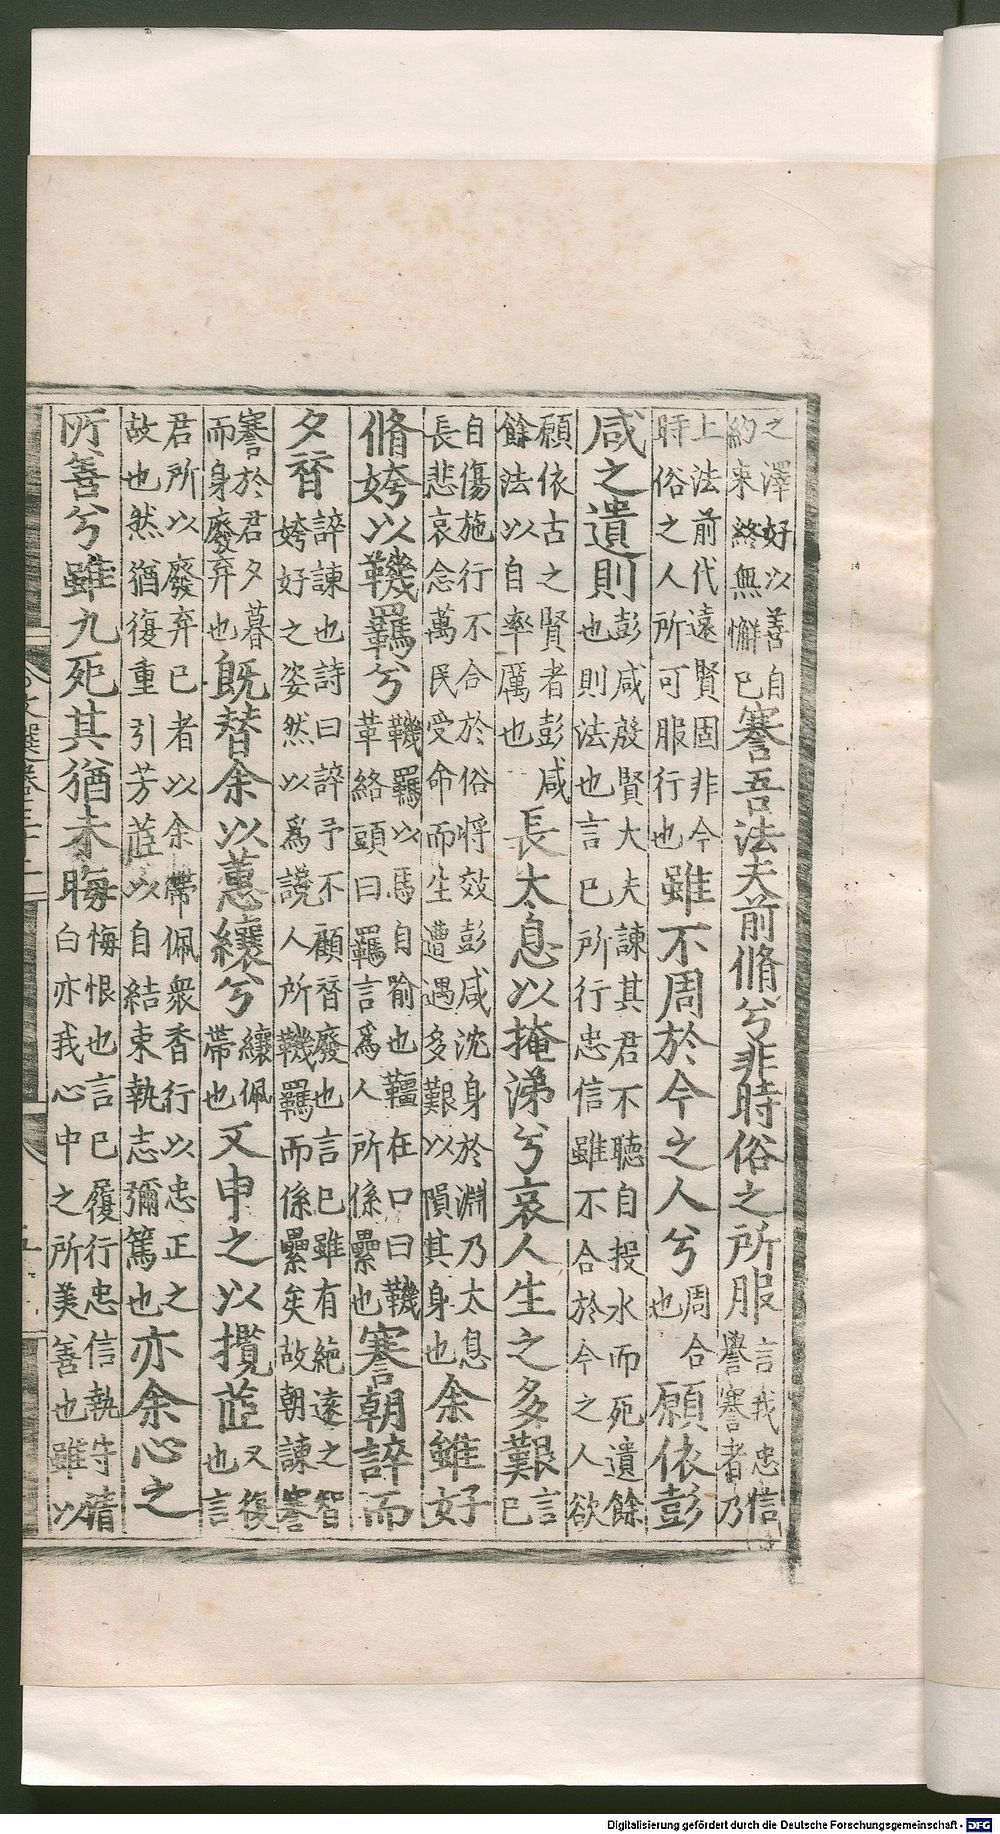 之澤好以善自約束終無懈已謇吾法夫前脩兮非時俗之所服言我忠信謇謇者乃
上法前代遠賢固非今時俗之人所可服行也雖不周於今之人兮周合也願依彭
咸之遺則彭咸殷賢大夫諫其君不聽自投水而死遺餘也則法也言已所行忠信雖不合於今之人欲
願依古之賢者彭咸餘法以自率厲也長太息以掩涕兮哀人生之多艱言已
自傷施行不合於俗將效彭咸沈身於淵乃太息長悲哀念萬民受命而生遭遇多艱以隕其身也余雖好
脩姱以鞿羈兮鞿羈以馬自喻也韁在口曰鞿革絡頭曰羈言爲人所係纍也謇朝誶而
夕朁誶諫也詩曰誶予不顧朁廢也言已雖有絶遠之智姱好之姿然以爲讒人所鞿羈而係纍矣故朝諫謇
謇於君夕暮而身廢弃也旣替余以蕙纕兮纕佩帶也又申之以攬茝又復也言
君所以廢弃已者以余帶佩衆香行以忠正之故也然猶復重引芳茝以自結束執志彌篤也亦余心之
所善兮雖九死其猶未晦悔恨也言已履行忠信執守清白亦我心中之所美善也雖以
文選卷三十二 五
Digitalisierung gefördert durch die Deutsche Forschungsgemeinschaft - DFG